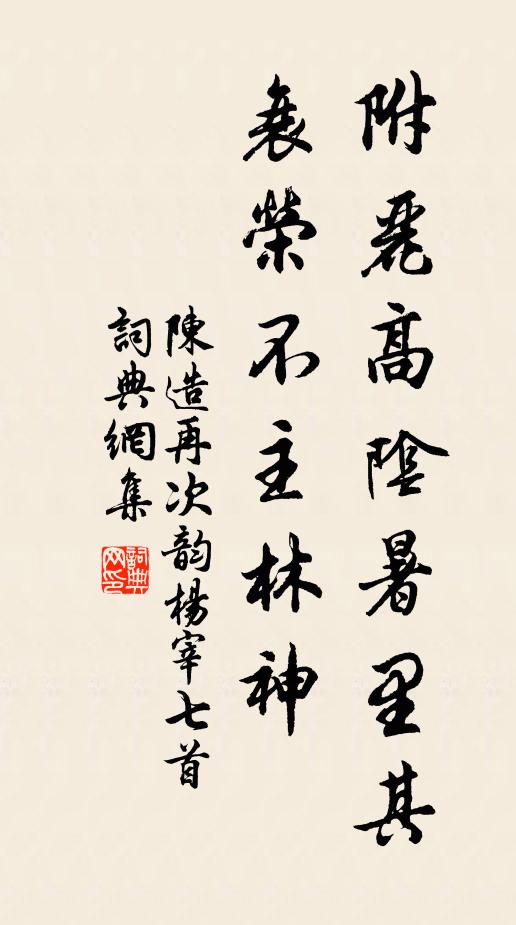 附麗高陰暑里其
衰榮不主林神
陳造再次韵楊宰七首
詞典網集
詞典网印